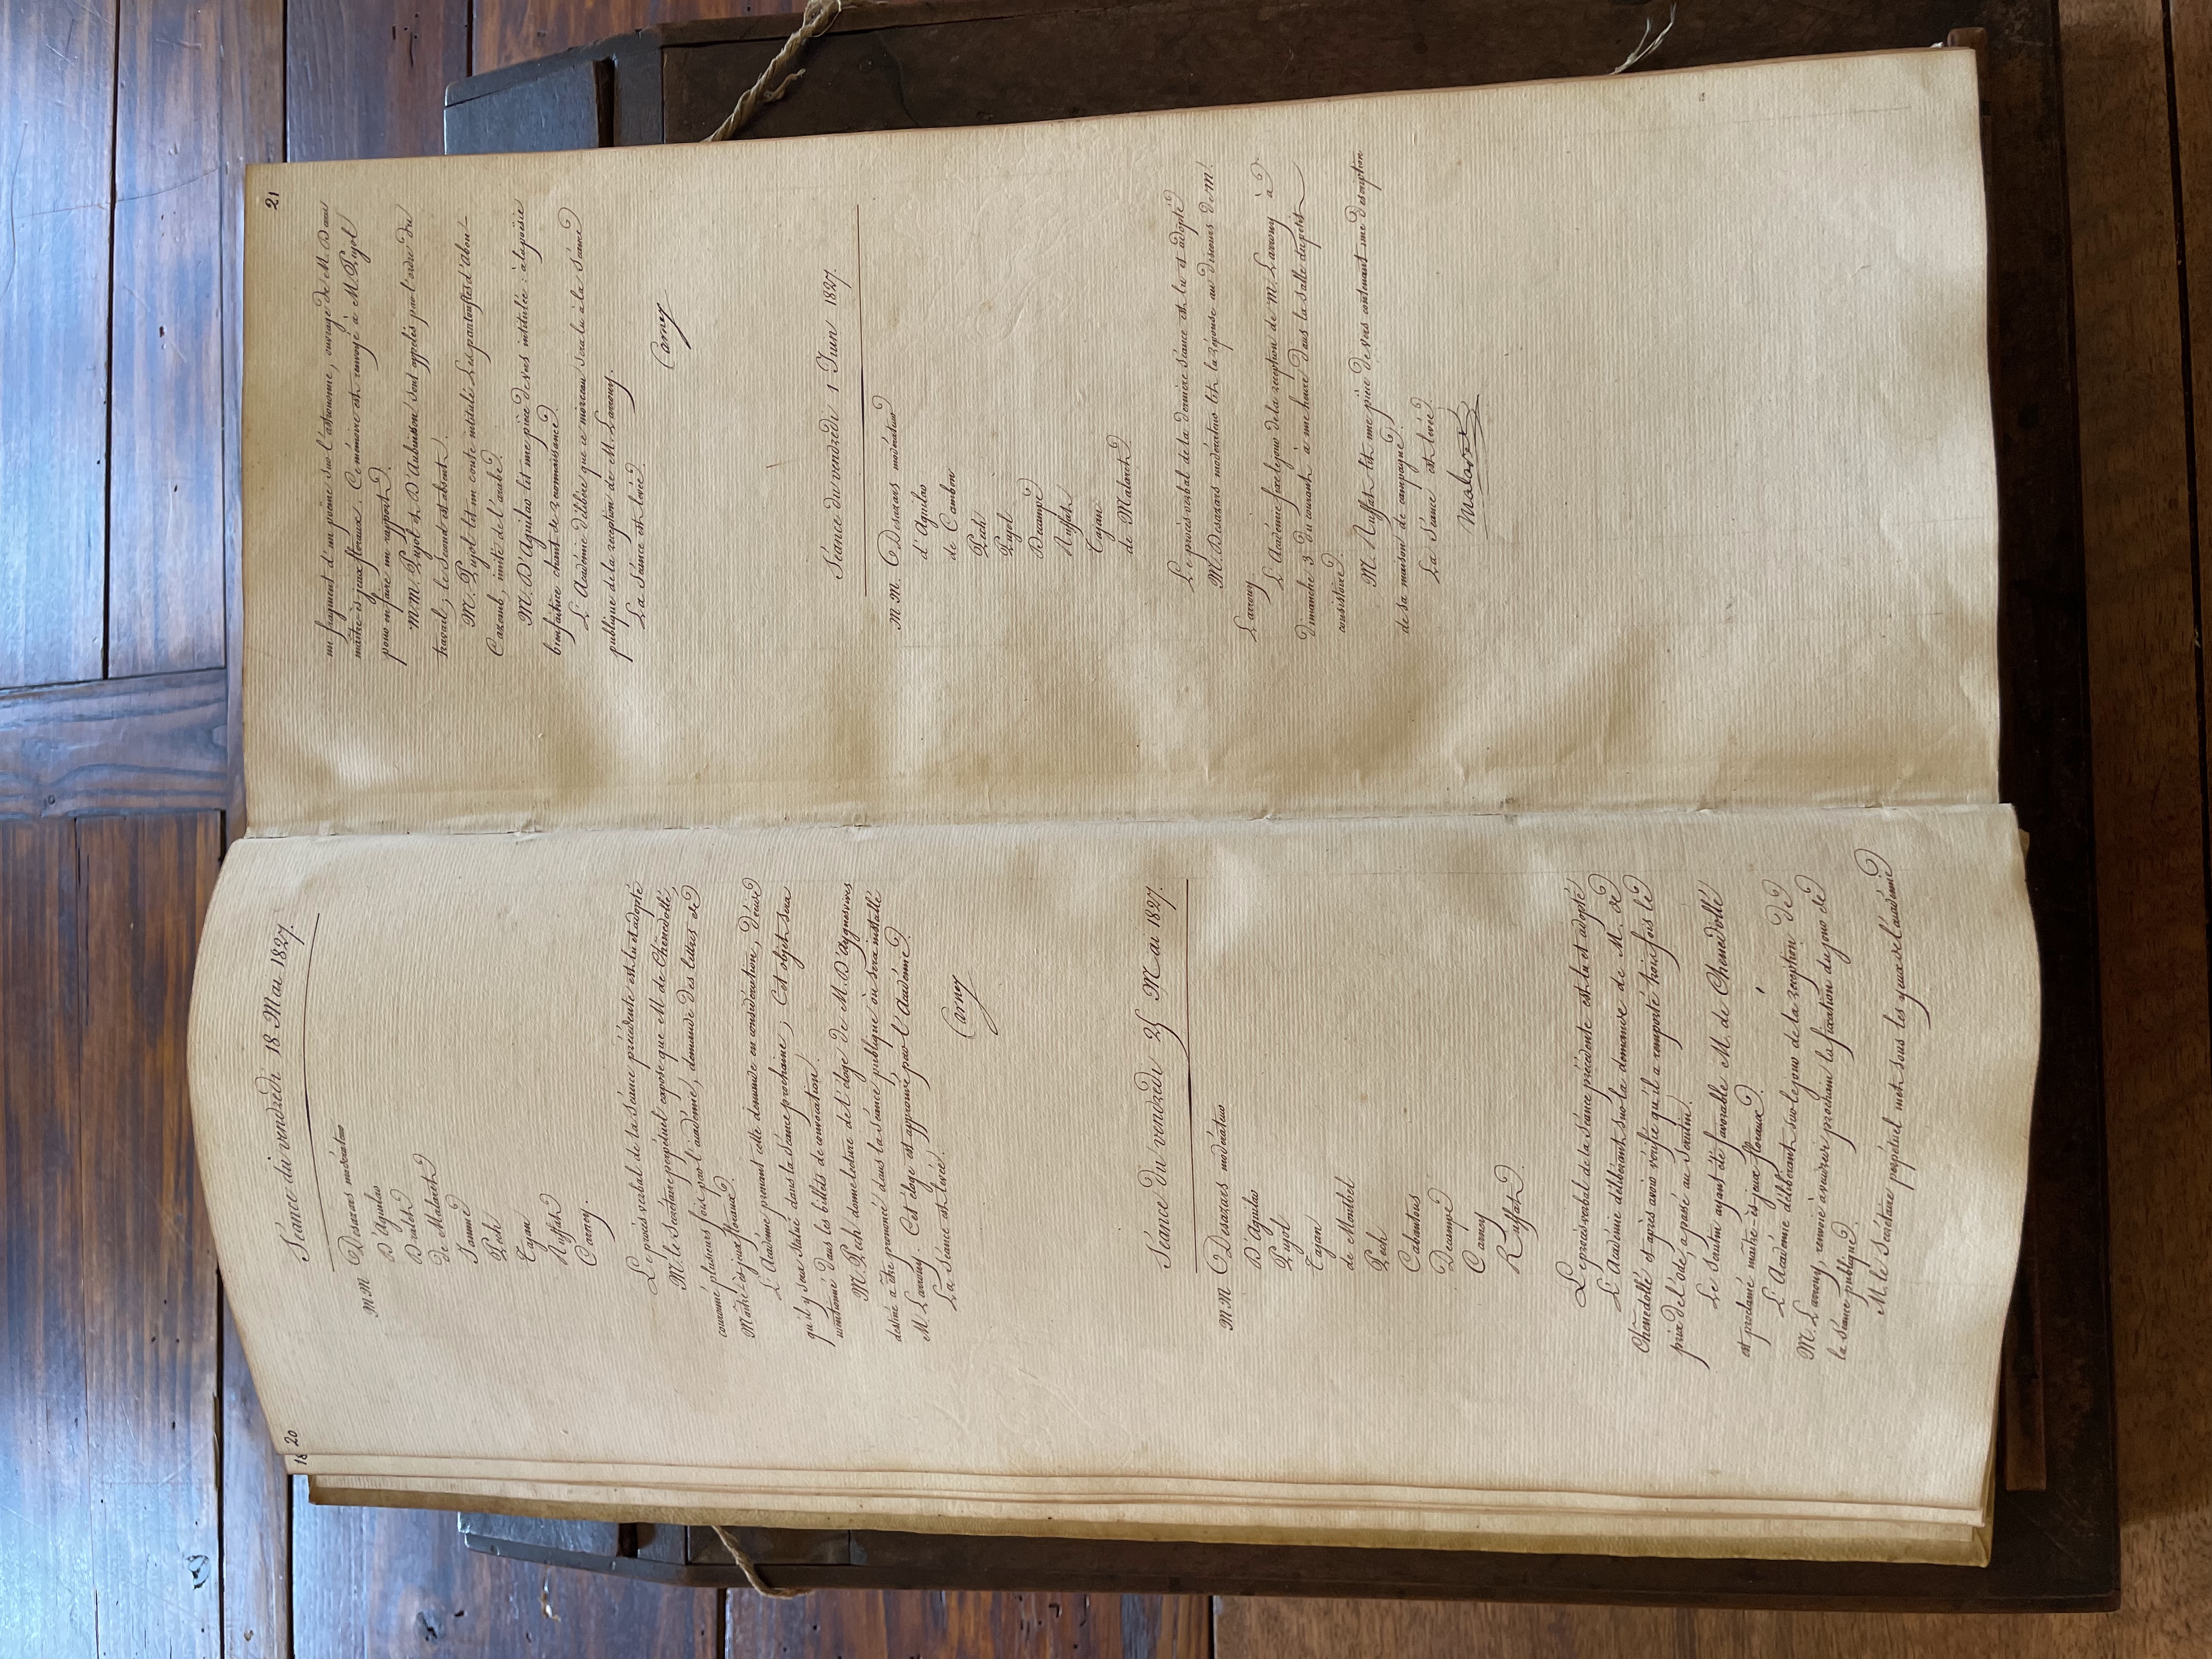 20
18
Séance du vendredi 18 Mai 1827.
MM Desazars modérateur
D'Aguilar
Dralet
De Malaret
Jammé
Pech
Tajan
Ruffat
Carney.
Le procès verbal de la séance précédente est lu et adopté
M. le Secrétaire perpétuel expose que M de Chênedollé,
couronné plusieurs fois par l'académie, demande des lettres de
Maître ès jeux floraux.
L'Académie prenant cette demande en considération, décide
qu'il y sera statué dans la séance prochaine; Cet objet sera
mentionné dans les billets de convocation.
M. Pech donne lecture de l'éloge de M. D'Ayguesvives
destiné à être prononcé dans la séance publique où sera installé
M. Larrouy. Cet éloge est approuvé par l'Académie.
La Séance est levée.
Carney
Séance du vendredi 25 Mai 1827.
MM Desazars modérateur
D'Aguilar
Pujol
Tajan
de Montbel
Pech
Cabantous
Decampe
Carney
Ruffat.
Le procès verbal de la séance précédente est lu et adopté
L'Académie délibérant sur la demande de M. de
Chênedollé et après avoir vérifié qu'il a remporté trois fois le
prix de l'ode, a passé au scrutin.
Le scrutin ayant été favorable M. de Chenedollé
est proclamé maître-ès-jeux floraux.
L'Académie délibérant sur le jour de la réception de
M. Larrouy, renvoie à vendredi prochain la fixation du jour de
la séance publique.
M. le Secrétaire perpétuel met sous les yeux de l'académie
21
un fragment d'un poëme sur l'astronomie, ouvrage de M. Daru
maître-ès-jeux floraux. Ce mémoire est renvoyé à M. Pujol
pour en faire un rapport.
M.M. Pujol et D'Aubuisson sont appelés par l'ordre du
travail, le second est absent.
M. Pujol lit un conte intitulé Les pantoufles d'abou-
Cazoub, imité de l'arabe.
M. D'Aguilar lit une pièce de vers intitulée: à la poësie
bienfaitrice chant de reconnaissance.
L'Académie délibère que ce morceau sera lu à la séance
publique de la réception de M. Larrouy.
La Séance est levée.
Carney
Séance du vendredi 1 Juin 1827.
MM. Desazars modérateur
d'Aguilar
de Cambon
Pech
Pujol
Decampe
Ruffat
Tajan
de Malaret
Le procès verbal de la dernière séance est lu et adopté
M. Desazars modérateur lit la réponse au discours de Mr.
Larrouy
L'Académie fixe le jour de la réception de M. Larrouy à
dimanche 3 du courant à une heure dans la salle du petit
consistoire.
M. Ruffat lit une pièce de vers contenant une description
de sa maison de campagne.
La Séance est levée.
Malaret